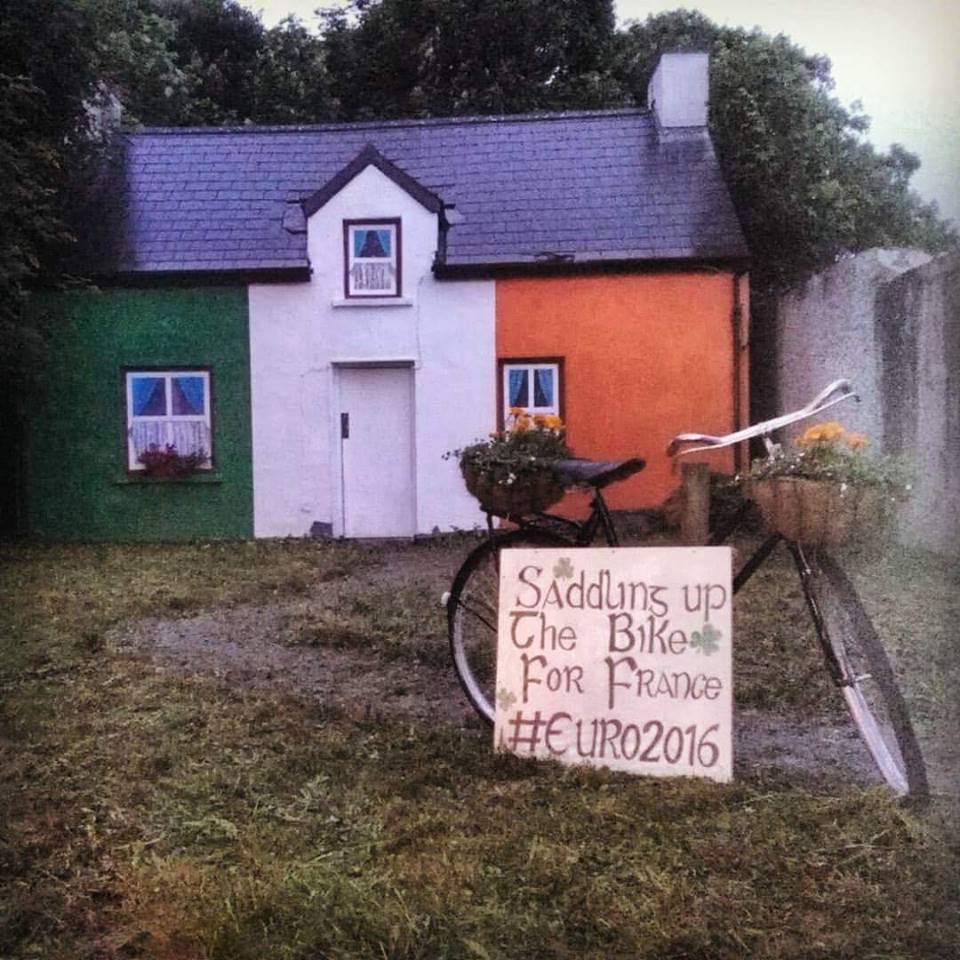 Saddling up
The Bike
For France
#Euro2016